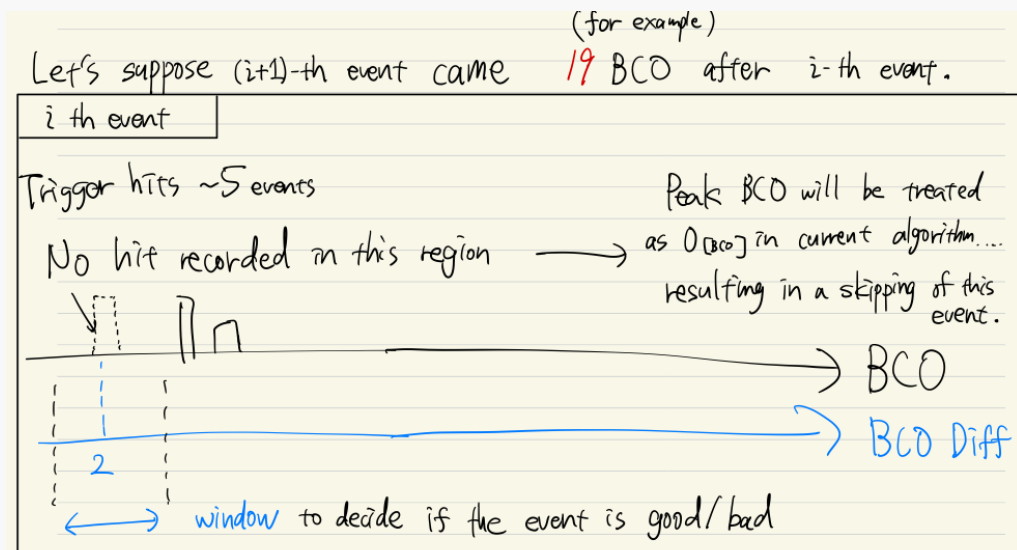 (for example)
Let's suppose (i+1)-th event came 19 BCO after i-th event.
i th event
Trigger hits ~5 events
No hit recorded in this region
Peak BCO will be treated
as 0[BCO] in current algorithm....
resulting in a skipping of this
event.
BCO
BCO Diff
2
window to decide if the event is good/bad